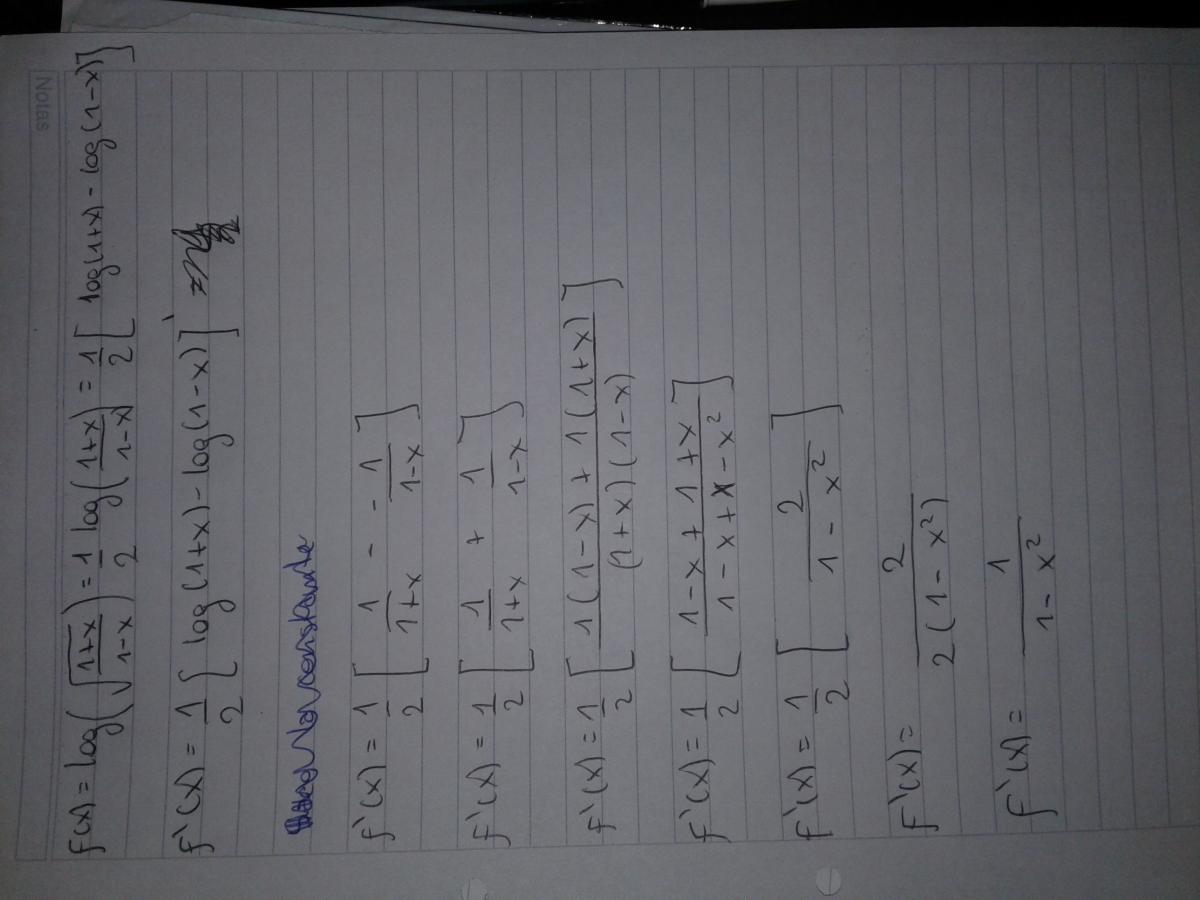 Notas
f(x) = log(√(1+x / 1-x)) = 1/2 log(1+x / 1-x) = 1/2 [log(1+x) - log(1-x)]
f'(x) = 1/2 [log(1+x) - log(1-x)]'
constante
f'(x) = 1/2 [1/1+x - -1/1-x]
f'(x) = 1/2 [1/1+x + 1/1-x]
f'(x) = 1/2 [1(1-x) + 1(1+x) / (1+x)(1-x)]
f'(x) = 1/2 [1-x+1+x / 1-x+x-x²]
f'(x) = 1/2 [2 / 1-x²]
f'(x) = 2 / 2(1-x²)
f'(x) = 1 / 1-x²